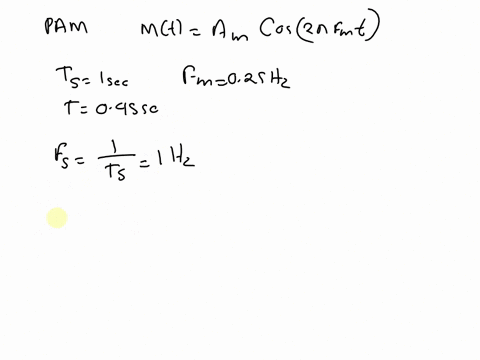 PAM M(t) = Am Cos(2π Fmt)
Ts = 1sec Fm = 0.25Hz
T = 0.45sc
Fs = 1/Ts = 1 Hz